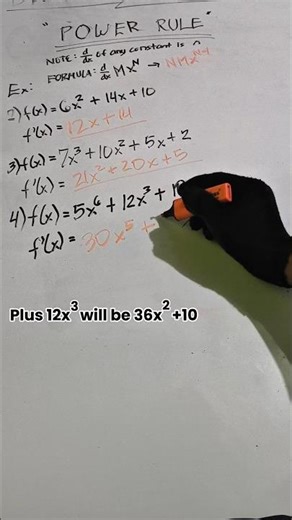 "POWER RULE"
NOTE: d/dx of any constant is
FORMULA: d/dx MX^N → NMX^N-1
Ex:
2) f(x) = 6x² + 14x + 10
f'(x) = 12x + 14
3) f(x) = 7x³ + 10x² + 5x + 2
f'(x) = 21x² + 20x + 5
4) f(x) = 5x⁶ + 12x³ + 1
f'(x) = 30x⁵ +
Plus 12x³ will be 36x² +10